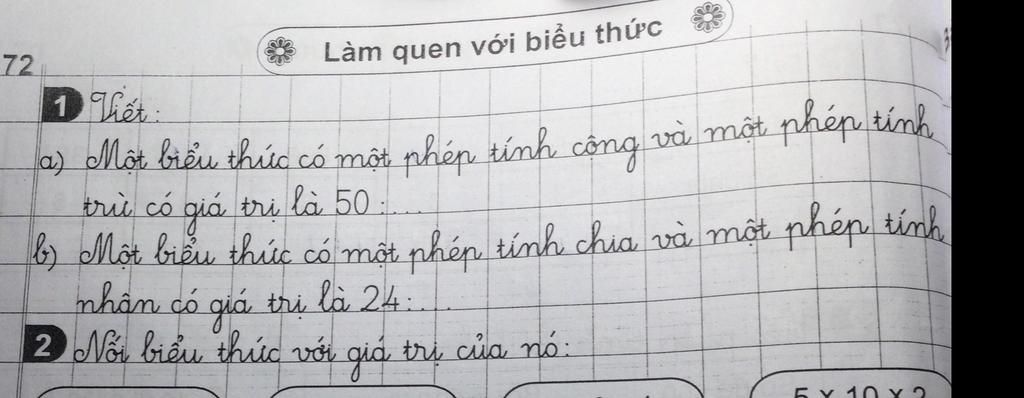 Làm quen với biểu thức
72
1 Viết:
a) Một biểu thức có một phép tính cộng và một phép tính
trừ có giá trị là 50:....
b) Một biểu thức có một phép tính chia và một phép tính
nhân có giá trị là 24:....
2 Nối biểu thức với giá trị của nó:
5 x 10 x 2